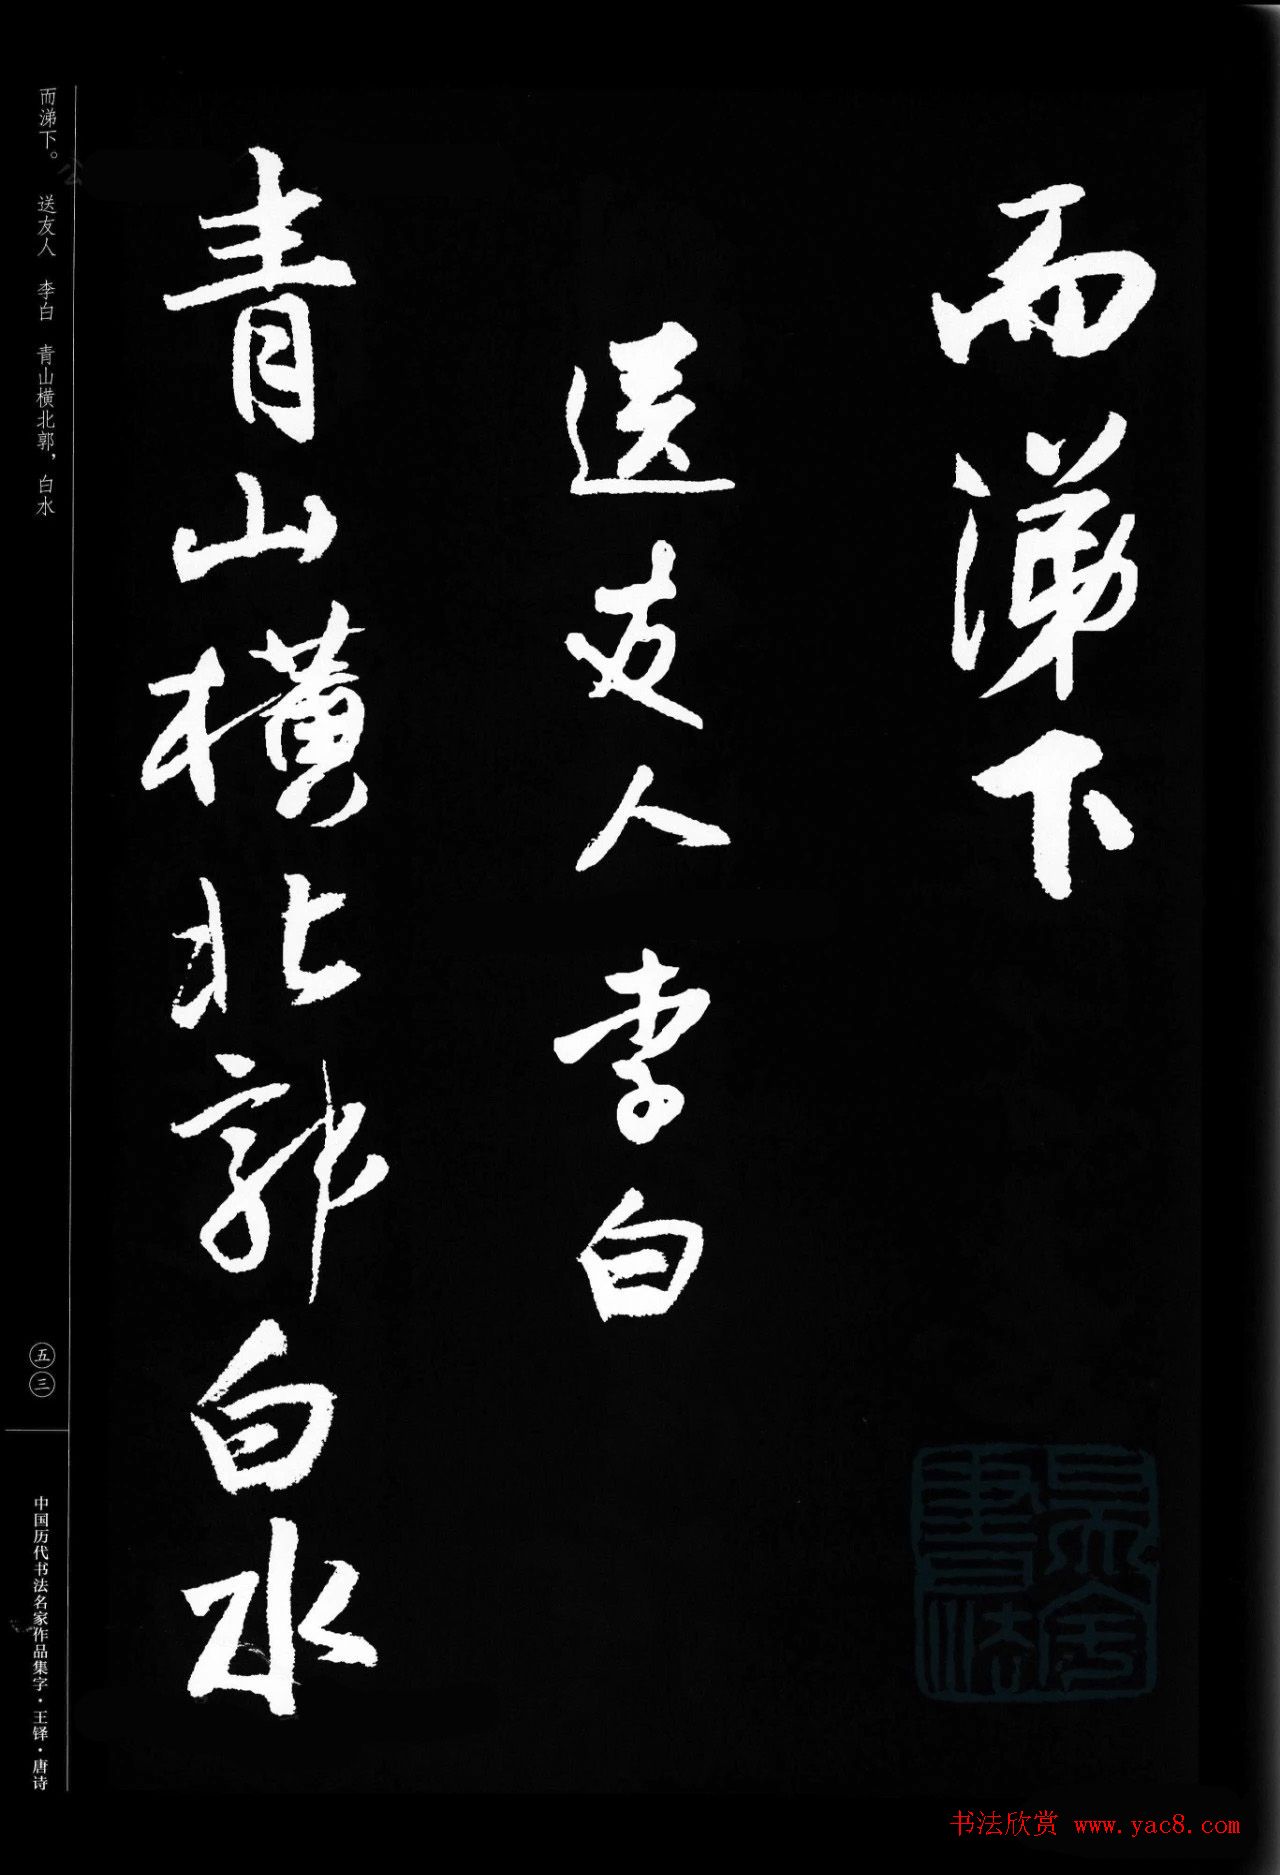 而涕下
送友人李白
青山横北郭白水
而涕下。 送友人 李白 青山横北郭，白水
五三
中国历代书法名家作品集字·王铎·唐诗
书法欣赏 www.yac8.com